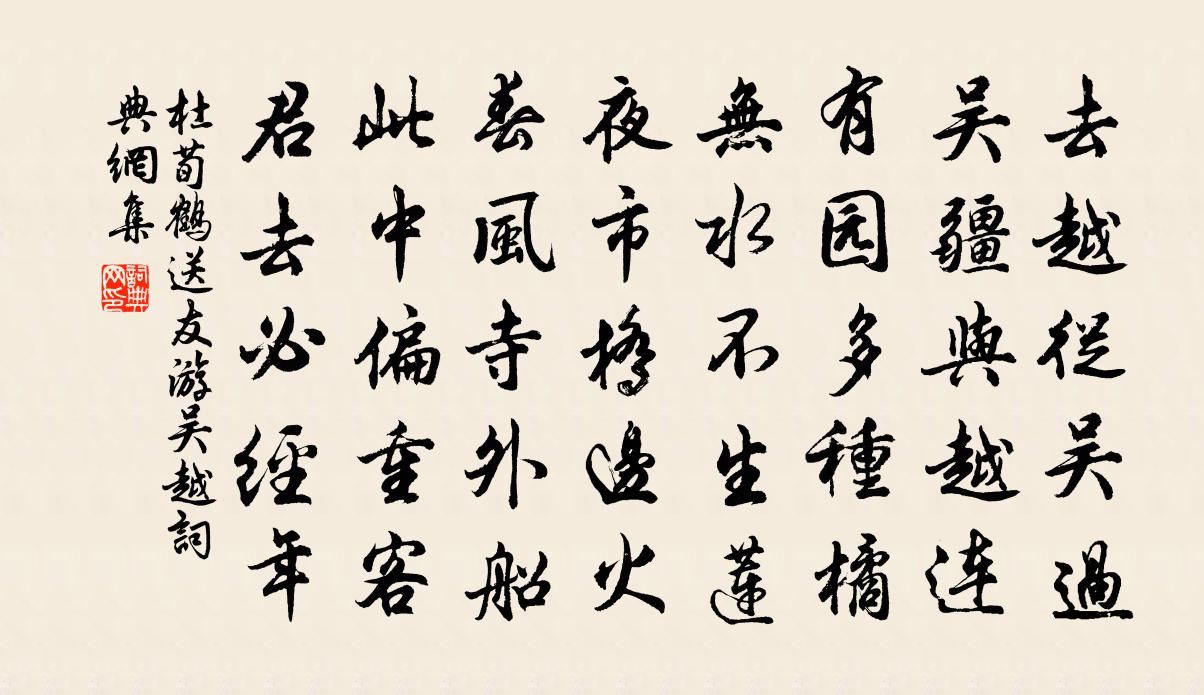 去越從吴過
吴疆與越連
有园多種橘
無水不生蓮
夜市橋邊火
春風寺外船
此中偏重客
君去必經年
杜荀鶴送友游吴越詞
典網集
詞典
网印